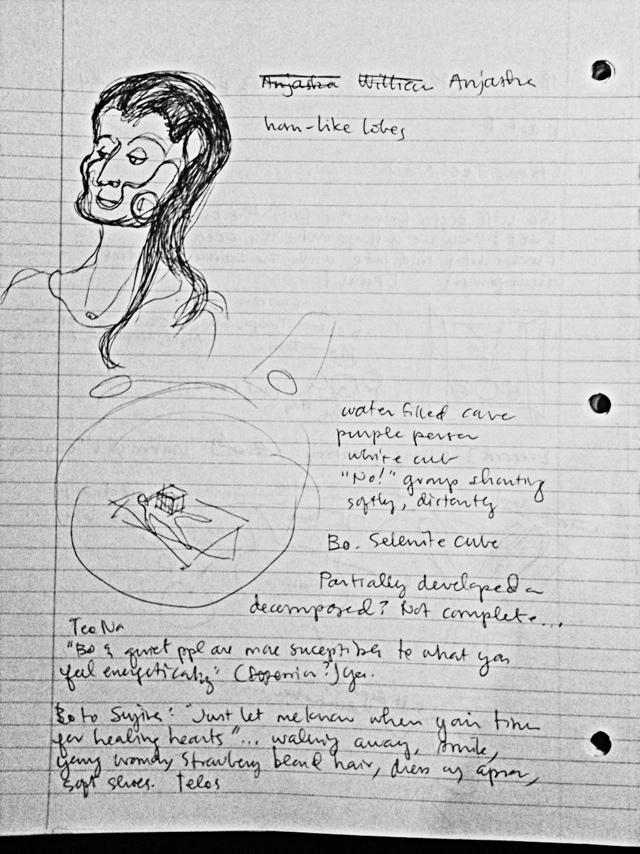 Anjasha William Anjasha
horn-like lobes
water filled cave
purple person
white cub
"No!" group shouting
softly, distantly
Bo. Selenite cube
Partially developed or
decomposed? Not complete...
TeeNa
"Bo & quiet ppl are more suceptible to what you
feel energetically." ( ?) Yes.
Bo to Sujira: "Just let me know when your time
for healing hearts"... walking away, smile,
young woman, strawberry blond hair, dress w/ apron,
soft shoes. Telos